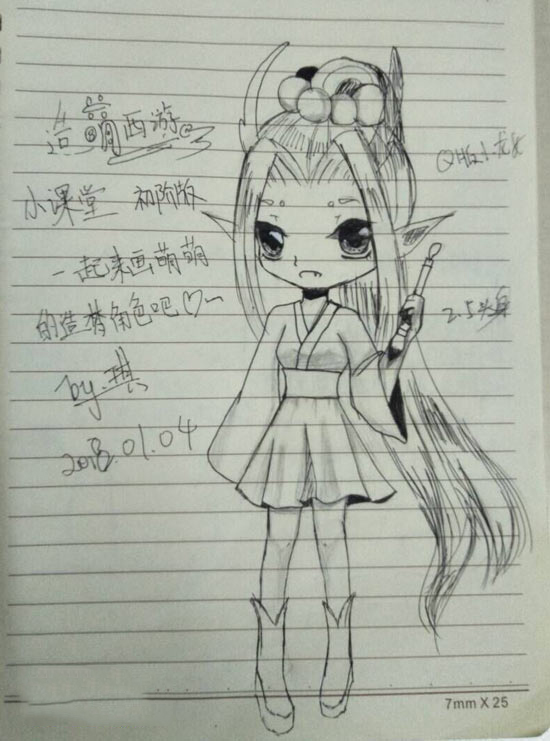 造梦西游
小课堂 初阶版
一起来画萌萌
的造梦角色吧♡~
by.琪
2018.01.04
Q版小龙女
2.5头身
7mm X 25